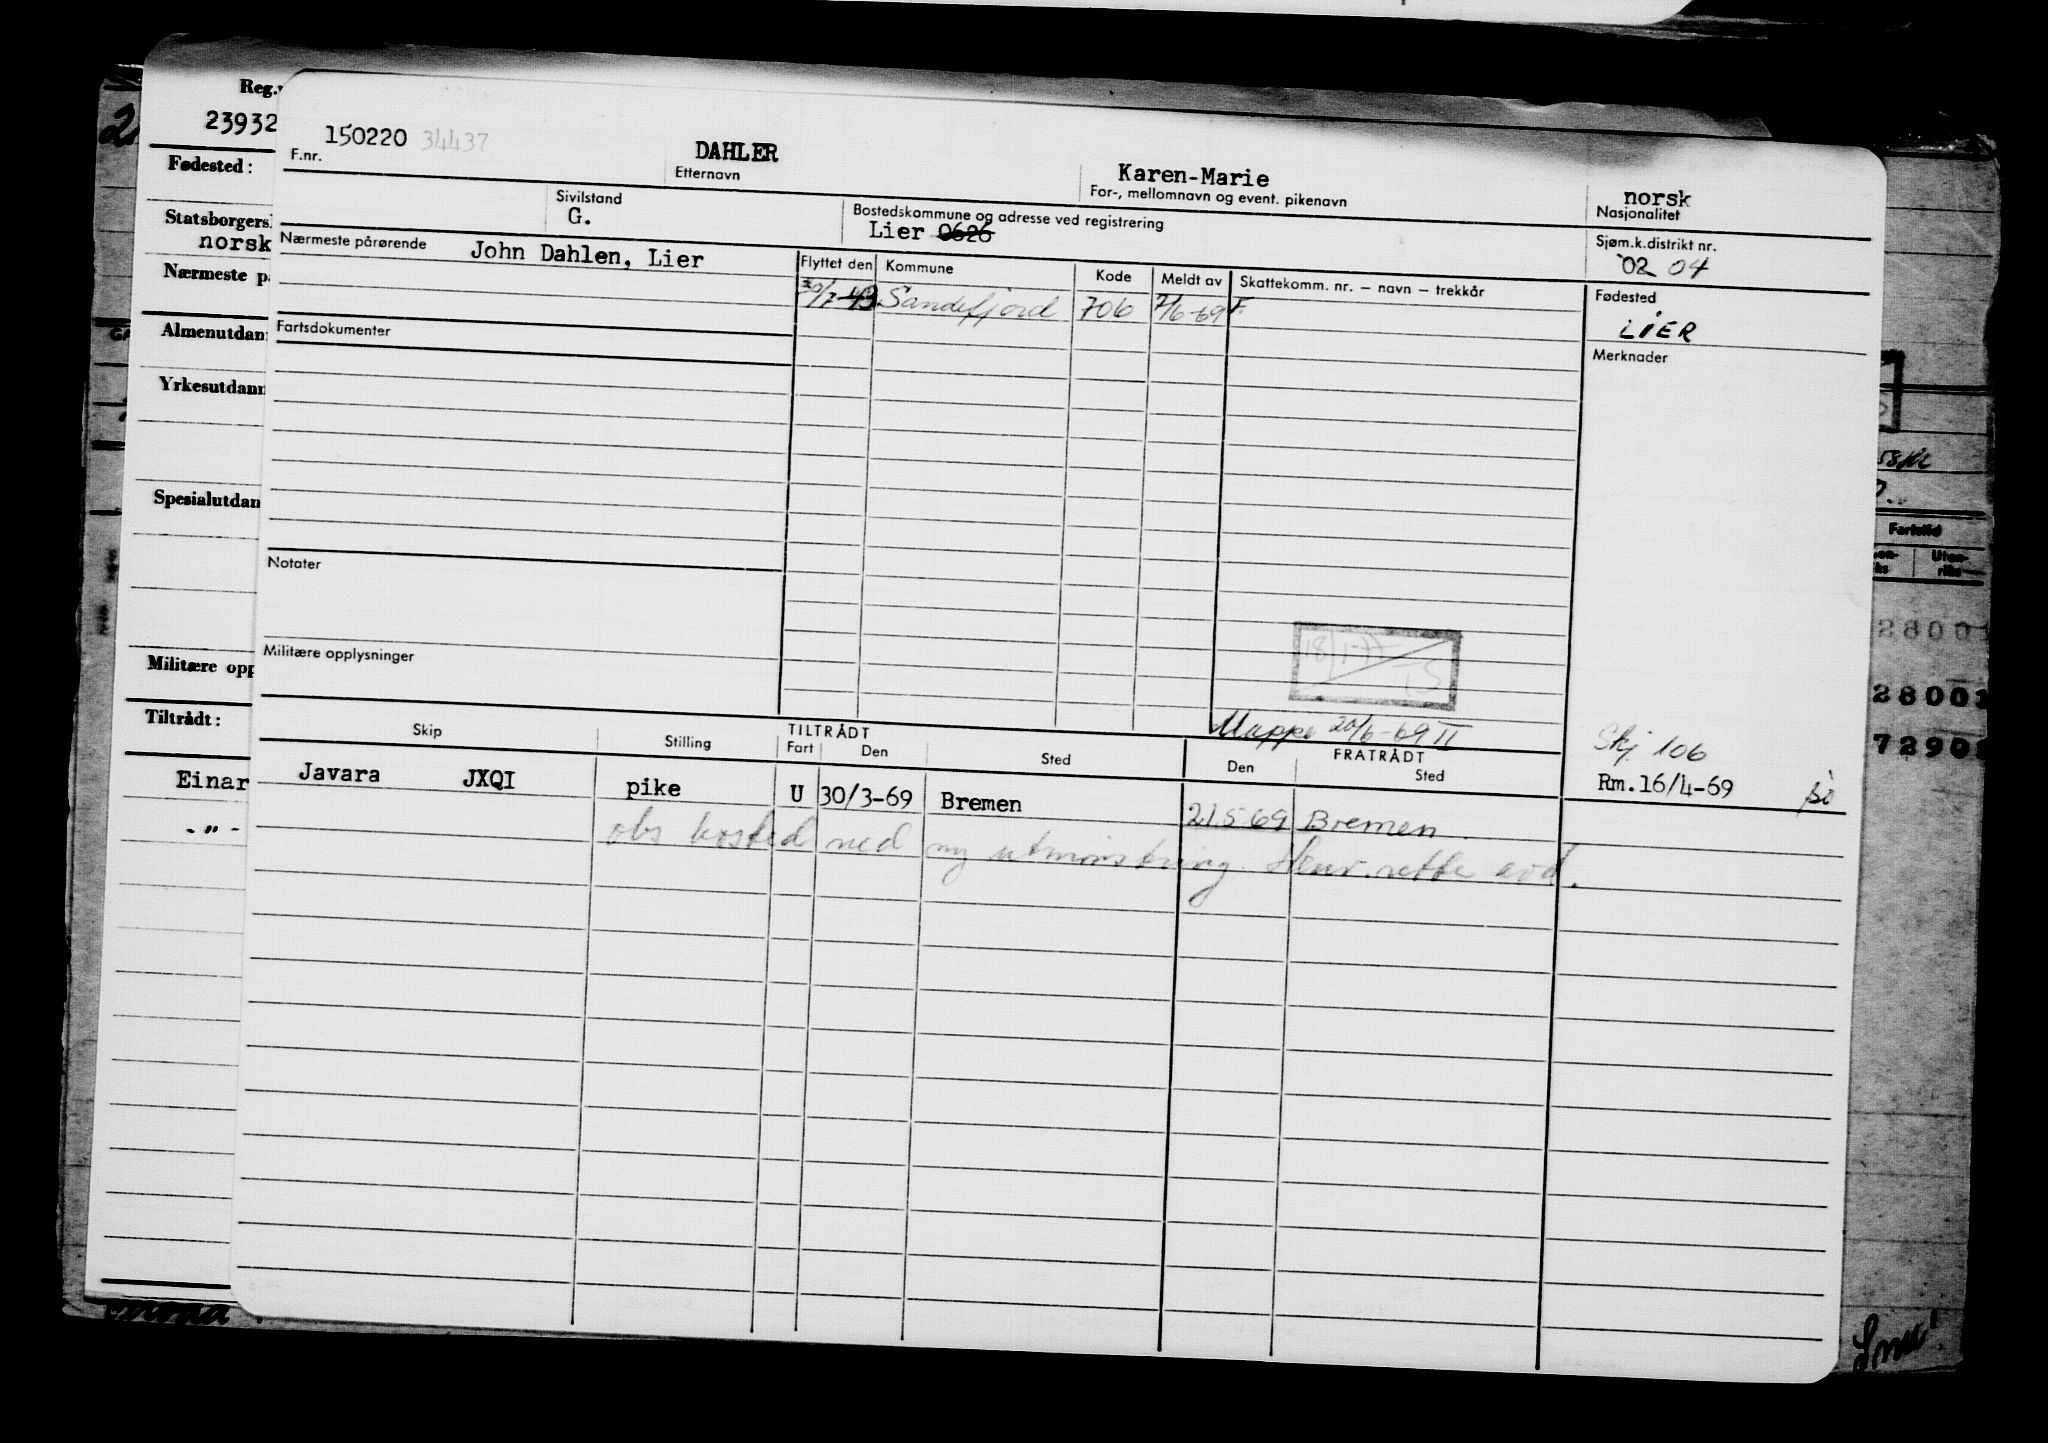 Reg.
23932
Fødested:
Statsborgers
norsk
Nærmeste p
Almenutdan
Yrkesutdann
Spesialutdan
Militære opp
Tiltrådt:
Einar
- " -
150220 34437
F.nr.
DAHLER
Etternavn
Karen-Marie
For-, mellomnavn og event. pikenavn
norsk
Nasjonalitet
Sivilstand
G.
Bostedskommune og adresse ved registrering
Lier 0626
Sjøm.k.distrikt nr.
02 04
Nærmeste pårørende John Dahlen, Lier
Flyttet den Kommune Kode Meldt av Skattekomm. nr. – navn – trekkår
Sandefjord 706 7/6-69 F.
Fødested
LIER
Fartsdokumenter
Merknader
Notater
Militære opplysninger
18/1-77
Mappe 20/6-69 II
Skj 106
Skip Stilling TILTRÅDT Fart Den Sted FRATRÅDT Den Sted
Javara JXQI pike U 30/3-69 Bremen 21.5 69 Bremen Rm.16/4-69
obs bosted ved ny utmønstring.
Fartstid
Uten-
riks
28001
28001
7290